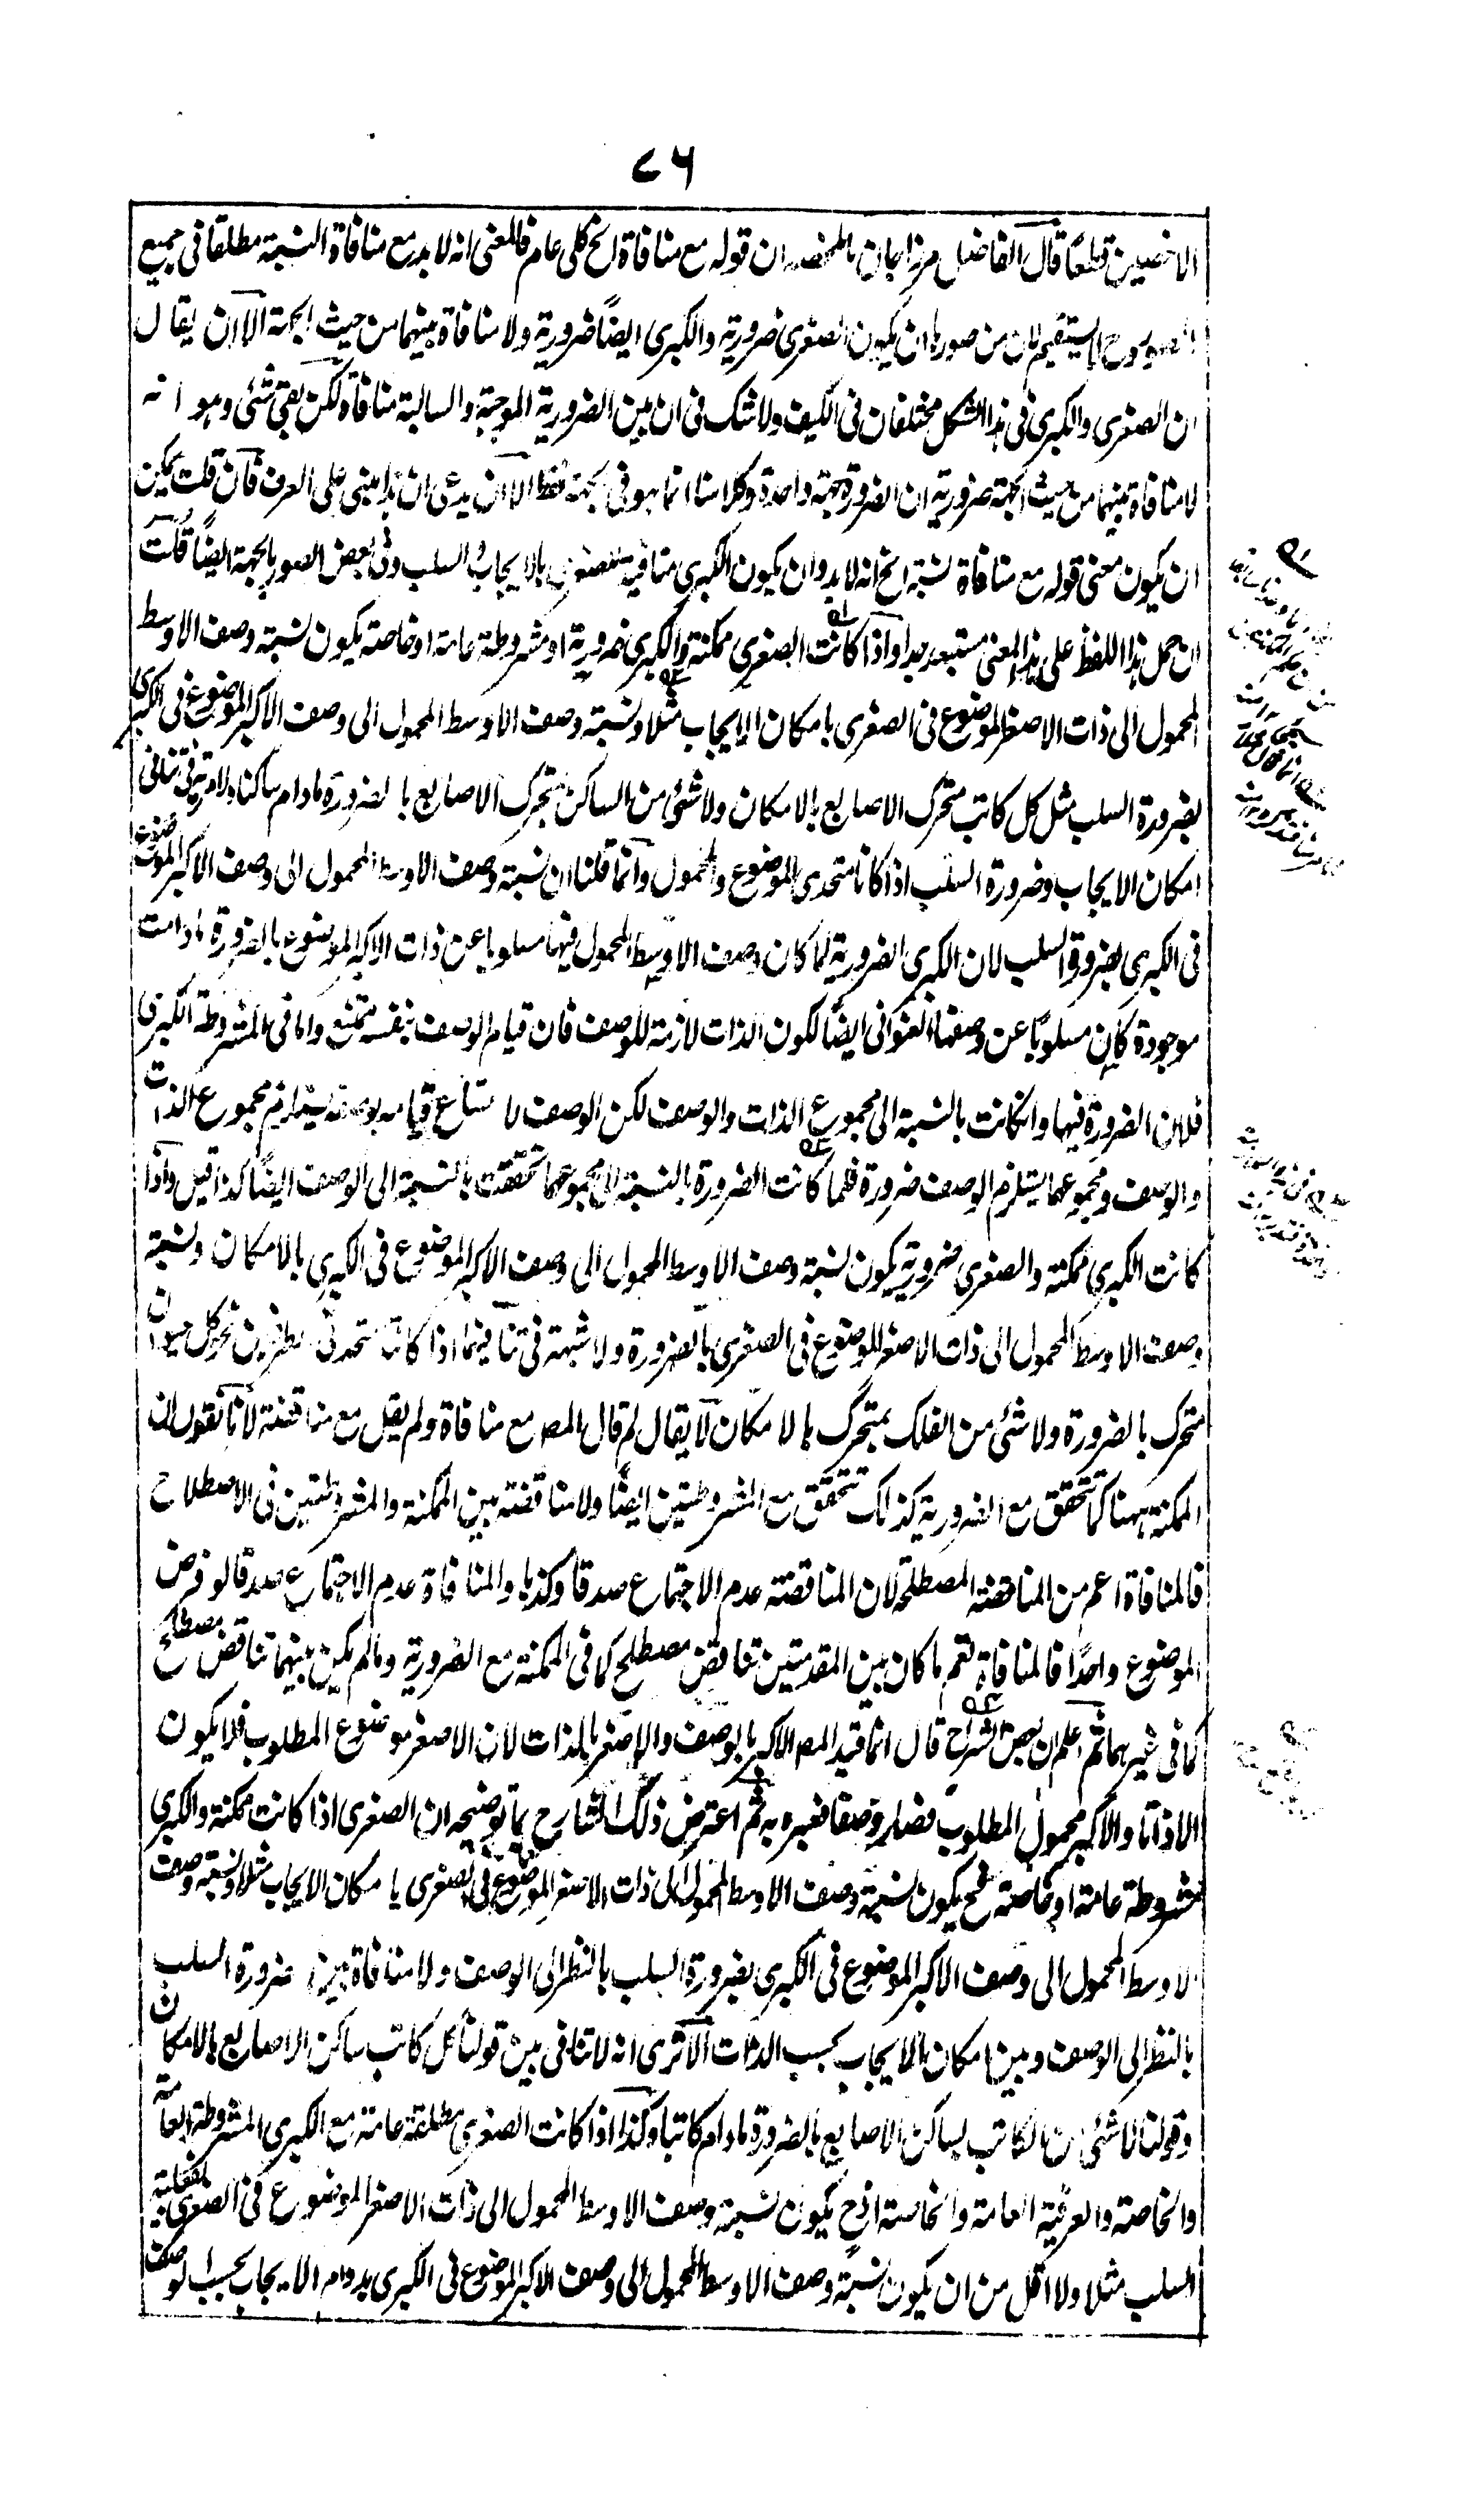 ٧٦
الاخصين قطعًا قال الفاضل مرزاجان ما لمخصه ان قوله مع منافاة الخ كلى عام فالمعنى انه لا بد مع منافاة النسبة مطلقا فى جميع
الصور وح لا يستقيم لان من صورها ان يكون الصغرى ضرورية والكبرى ايضًا ضرورية ولا منافاة بينهما من حيث الجهة الا ان يقال
ان الصغرى والكبرى فى هذا الشكل مختلفان فى الكيف ولا شك فى ان بين الضرورية الموجبة والسالبة منافاة لكن بقى شئ وهو انه
لا منافاة بينهما من حيث الجهة ضرورية ان الضرورة جهة واحدة وكلامنا انما هو فى الجهة فقط الا ان يدعى ان هذا مبنى على العرف فان قلت يمكن
ان يكون معنى قوله مع منافاة نسبة الخ انه لا بد وان يكون الكبرى منافية للصغرى بالايجاب والسلب وفى بعض الصور بالجهة ايضًا قلت
ان حمل هذا اللفظ على هذا المعنى مستبعد جدا واذا كانت الصغرى ممكنة والكبرى ضرورية او مشروطة عامة او خاصة يكون نسبة وصف الاوسط
المحمول الى ذات الاصغر الموضوع فى الصغرى بامكان الايجاب مثلا ونسبة وصف الاوسط المحمول الى وصف الاكبر الموضوع فى الكبرى
بضرورة السلب مثل كل كاتب متحرك الاصابع بالامكان ولا شئ من الساكن بمتحرك الاصابع بالضرورة ما دام ساكنا ولا مرية فى تنافى
امكان الايجاب وضرورة السلب اذا كانا متحدى الموضوع والمحمول وانما قلنا ان نسبة وصف الاوسط المحمول الى وصف الاكبر الموضوع
فى الكبرى بضرورة السلب لان الكبرى الضرورية لما كان وصف الاوسط المحمول فيها مسلوبا عن ذات الاكبر الموضوع بالضرورة ما دامت
موجودة كان مسلوبًا عن وصفها العنوانى ايضًا لكون الذات لازمة للوصف فان قيام الوصف بنفسه ممتنع واما فى المشروطة الكبرى
فلان الضرورة فيها وانكانت بالنسبة الى مجموع الذات والوصف لكن الوصف لامتناع قيامه يستلزم مجموع الذات
والوصف ومجموعهما يستلزم الوصف ضرورة فلما كانت الضرورة بالنسبة الى مجموعهما تحققت بالنسبة الى الوصف ايضًا كذا قيل واذا
كانت الكبرى ممكنة والصغرى ضرورية يكون نسبة وصف الاوسط المحمول الى وصف الاكبر الموضوع فى الكبرى بالامكان ونسبة
وصف الاوسط المحمول الى ذات الاصغر الموضوع فى الصغرى بالضرورة ولا شبهة فى تنافيهما اذا كانتا متحدتى الطرفين نحو كل حيوان
متحرك بالضرورة ولا شئ من الفلك بمتحرك بالامكان لا يقال لم قال المص مع منافاة ولم يقل مع مناقضة لانا نقول ان
الممكنة ههنا كما تتحقق مع الضرورية كذلك تتحقق مع المشروطتين ايضًا ولا مناقضة بين الممكنة والمشروطتين فى الاصطلاح
فالمنافاة اعم من المناقضة المصطلحة لان المناقضة عدم الاجتماع صدقا وكذبا والمنافاة عدم الاجتماع صدقا لو فرض
الموضوع واحدًا فالمنافاة تعم ما كان بين المقدمتين تناقض مصطلح كما فى الممكنة مع الضرورية وما لم يكن بينهما تناقض مصطلح
كما فى غيرهما ثم اعلم ان بعض الشراح قال انما قيد المص الاكبر بالوصف والاصغر بالذات لان الاصغر موضوع المطلوب فلا يكون
الا ذاتا والاكبر محمول المطلوب فصار وصفا فعبره به ثم اعترض ذلك الشارح بما توضيحه ان الصغرى اذا كانت ممكنة والكبرى
مشروطة عامة او خاصة فح يكون نسبة وصف الاوسط المحمول الى ذات الاصغر الموضوع فى الصغرى بامكان الايجاب مثلا ونسبة وصف
الاوسط المحمول الى وصف الاكبر الموضوع فى الكبرى بضرورة السلب بالنظر الى الوصف ولا منافاة بين ضرورة السلب
بالنظر الى الوصف وبين امكان الايجاب بحسب الذات الا ترى انه لا تنافى بين قولنا كل كاتب ساكن الاصابع بالامكان
وقولنا لا شئ من الكاتب بساكن الاصابع بالضرورة ما دام كاتبا وكذا اذا كانت الصغرى مطلقة عامة مع الكبرى المشروطة العامة
والخاصة والعرفية العامة والخاصة اذ ح يكون نسبة وصف الاوسط المحمول الى ذات الاصغر الموضوع فى الصغرى بفعلية
السلب مثلا ولا اقل من ان يكون نسبة وصف الاوسط المحمول الى وصف الاكبر الموضوع فى الكبرى بدوام الايجاب بحسب الوصف